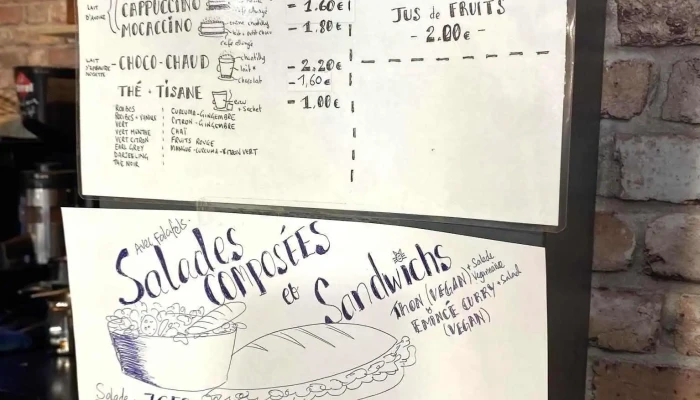 LAIT D'AVOINE
CAPPUCCINO - 1.60€
MOCACCINO - 1.80€
crème chantilly
café allongé
LAIT
NOISETTE
- CHOCO-CHAUD - 2.20€
chantilly
lait
chocolat
- 1,60€
THÉ + TISANE - 1,00€
eau
+ sachet
ROOIBOS
ROOIBOS + VANILLE
VERT
VERT MENTHE
VERT CITRON
EARL GREY
DARJEELING
THÉ NOIR
CURCUMA - GINGEMBRE
CITRON - GINGEMBRE
CHAÏ
FRUITS ROUGE
MANGUE - CURCUMA - CITRON VERT
JUS de FRUITS
- 2.00€ -
Avec Falafels -
Salades
COMPOSÉES
et Sandwichs
THON (VEGAN) + Salade
Végannaise
ÉMINCÉ CURRY + Salad
(VEGAN)
Salade